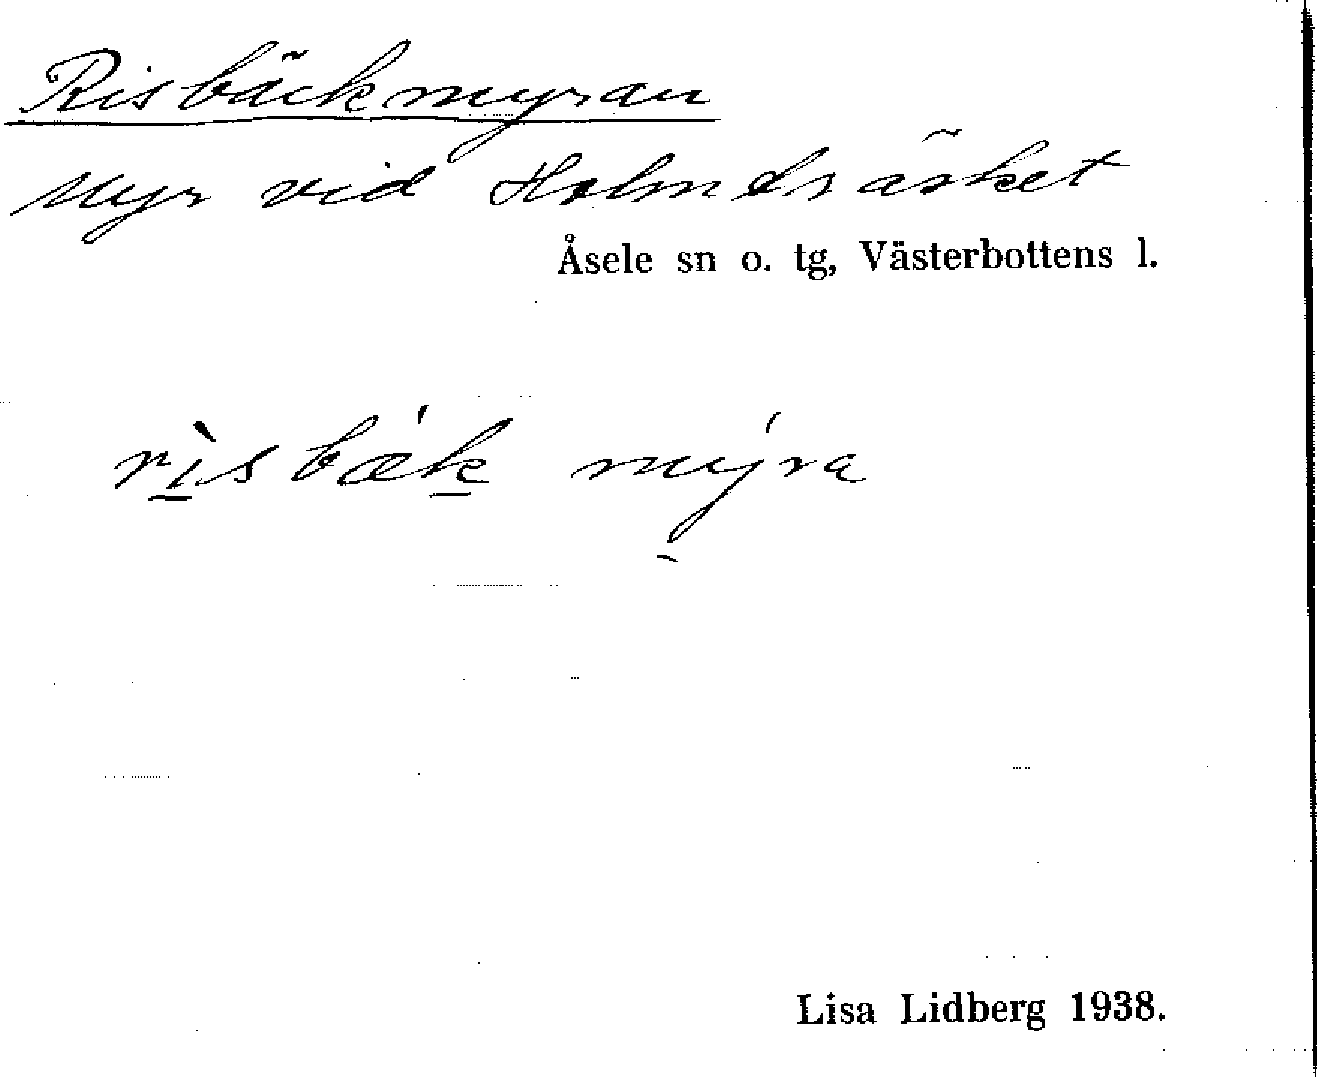 Risbäckmyran
Myr vid Holmträsket
Åsele sn o. tg, Västerbottens l.
rìsbæ̀k mýra
Lisa Lidberg 1938.